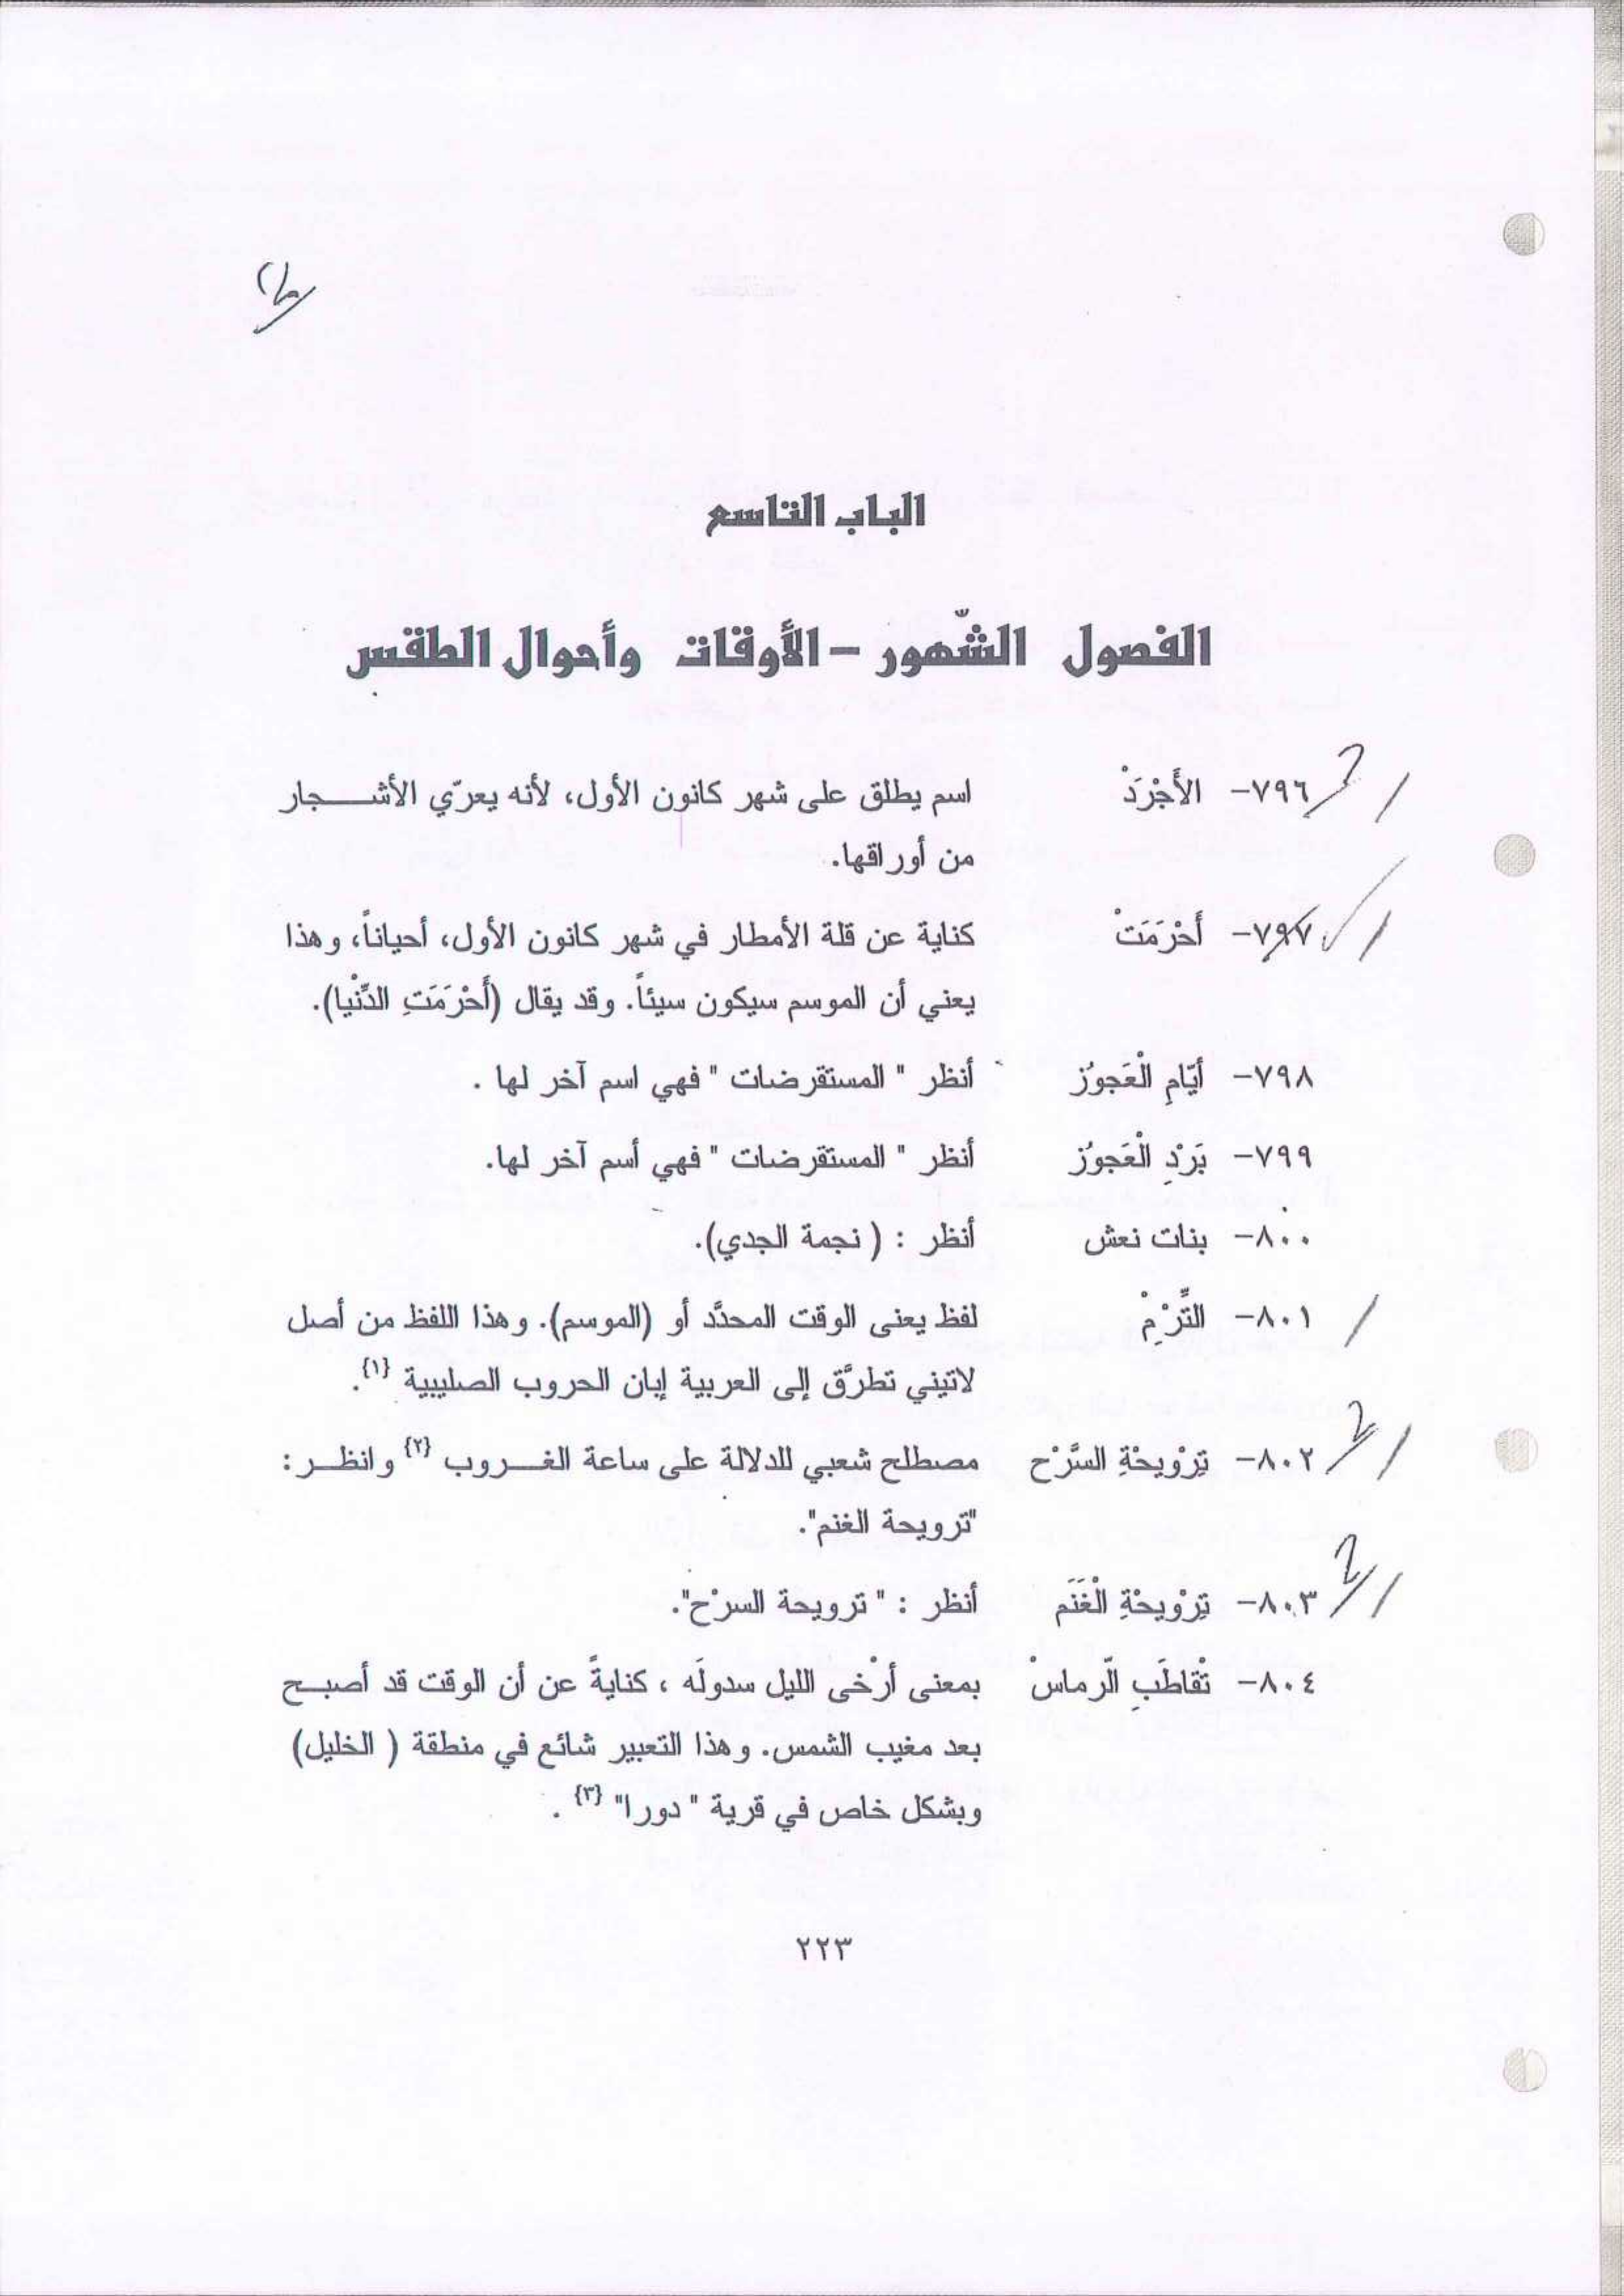 الباب التاسع
الفصول الشّهور – الأوقات وأحوال الطقس
٧٩٦- الأَجْرَدْ اسم يطلق على شهر كانون الأول، لأنه يعرّي الأشجار
من أوراقها.
٧٩٧- أَحْرَمَتْ كناية عن قلة الأمطار في شهر كانون الأول، أحياناً، وهذا
يعني أن الموسم سيكون سيئاً. وقد يقال (أَحْرَمَتِ الدِّنْيا).
٧٩٨- أيّامِ الْعَجوُز أنظر " المستقرضات " فهي اسم آخر لها .
٧٩٩- بَرْدِ الْعَجوُز أنظر " المستقرضات " فهي أسم آخر لها.
٨٠٠- بنات نعش أنظر : ( نجمة الجدي).
٨٠١- التِّرْمْ لفظ يعنى الوقت المحدَّد أو (الموسم). وهذا اللفظ من أصل
لاتيني تطرَّق إلى العربية إبان الحروب الصليبية {١}.
٨٠٢- تِرْويحْةِ السَّرْح مصطلح شعبي للدلالة على ساعة الغروب {٢} وانظر:
"ترويحة الغنم".
٨٠٣- تِرْويحْةِ الْغَنَم أنظر : " ترويحة السرْح".
٨٠٤- تْقاطَبِ الّرماسْ بمعنى أرْخى الليل سدولَه ، كنايةً عن أن الوقت قد أصبح
بعد مغيب الشمس. وهذا التعبير شائع في منطقة ( الخليل)
وبشكل خاص في قرية " دورا" {٣} .
٢٢٣